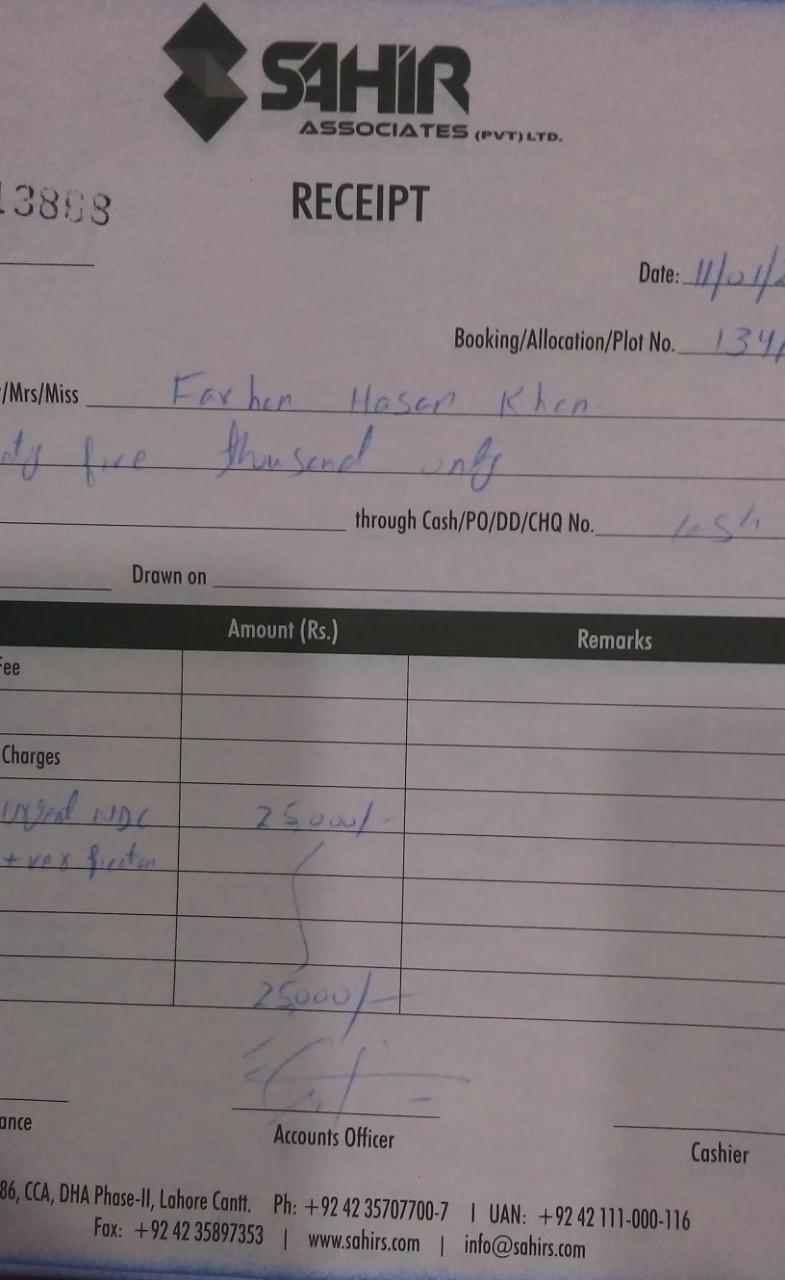 SAHIR
ASSOCIATES (PVT) LTD.
RECEIPT
13868
Date: 11/01/2
Booking/Allocation/Plot No. 134/
/Mrs/Miss Farhan Hasan Khan
nty five thousand only
through Cash/PO/DD/CHQ No. Cash
Drawn on
Amount (Rs.) Remarks
Fee
Charges
Urgent NDC 25,000/-
+
25,000/-
ance
Accounts Officer
Cashier
86, CCA, DHA Phase-II, Lahore Cantt. Ph: +92 42 35707700-7 | UAN: +92 42 111-000-116
Fax: +92 42 35897353 | www.sahirs.com | info@sahirs.com